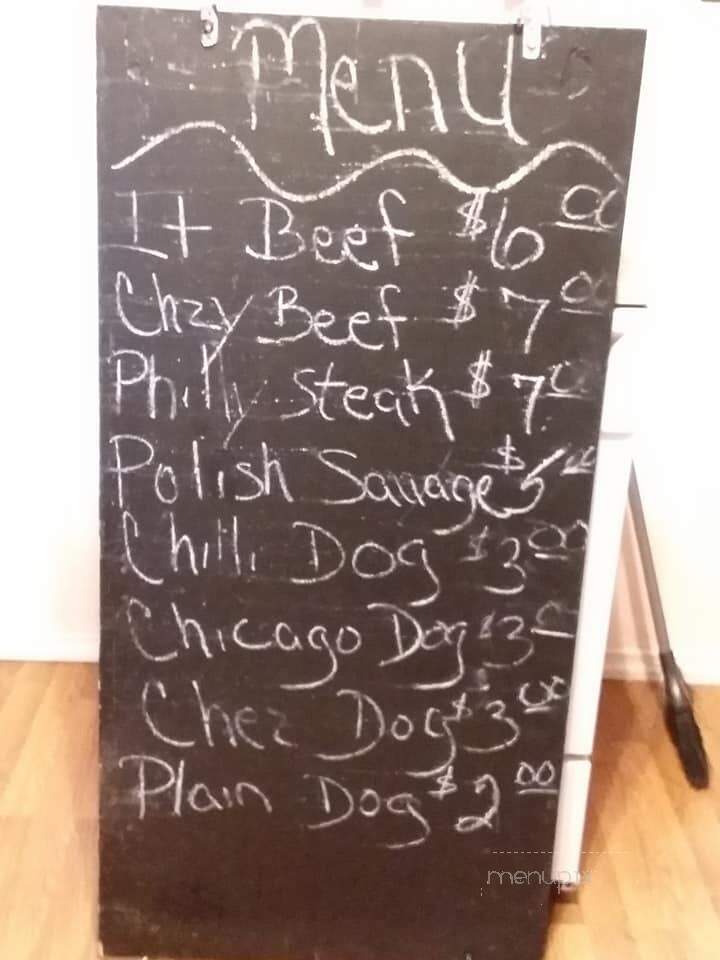 Menu
It Beef $6 00
Chzy Beef $7 00
Philly Steak $7 00
Polish Sausage $5 00
Chilli Dog $3 00
Chicago Dog $3 00
Chez Dog $3 00
Plain Dog $2 00
menupix